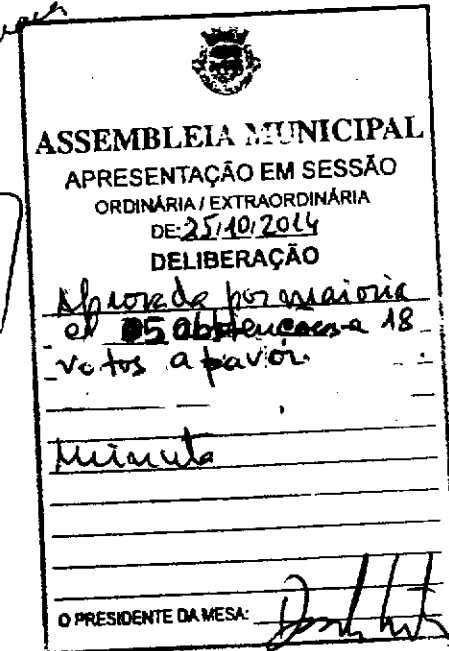 ASSEMBLEIA MUNICIPAL
APRESENTAÇÃO EM SESSÃO
ORDINÁRIA / EXTRAORDINÁRIA
DE: 25/10/2014
DELIBERAÇÃO
Aprovada por maioria
c/ 05 abstenções e 18
votos a favor.
Minuta
O PRESIDENTE DA MESA: